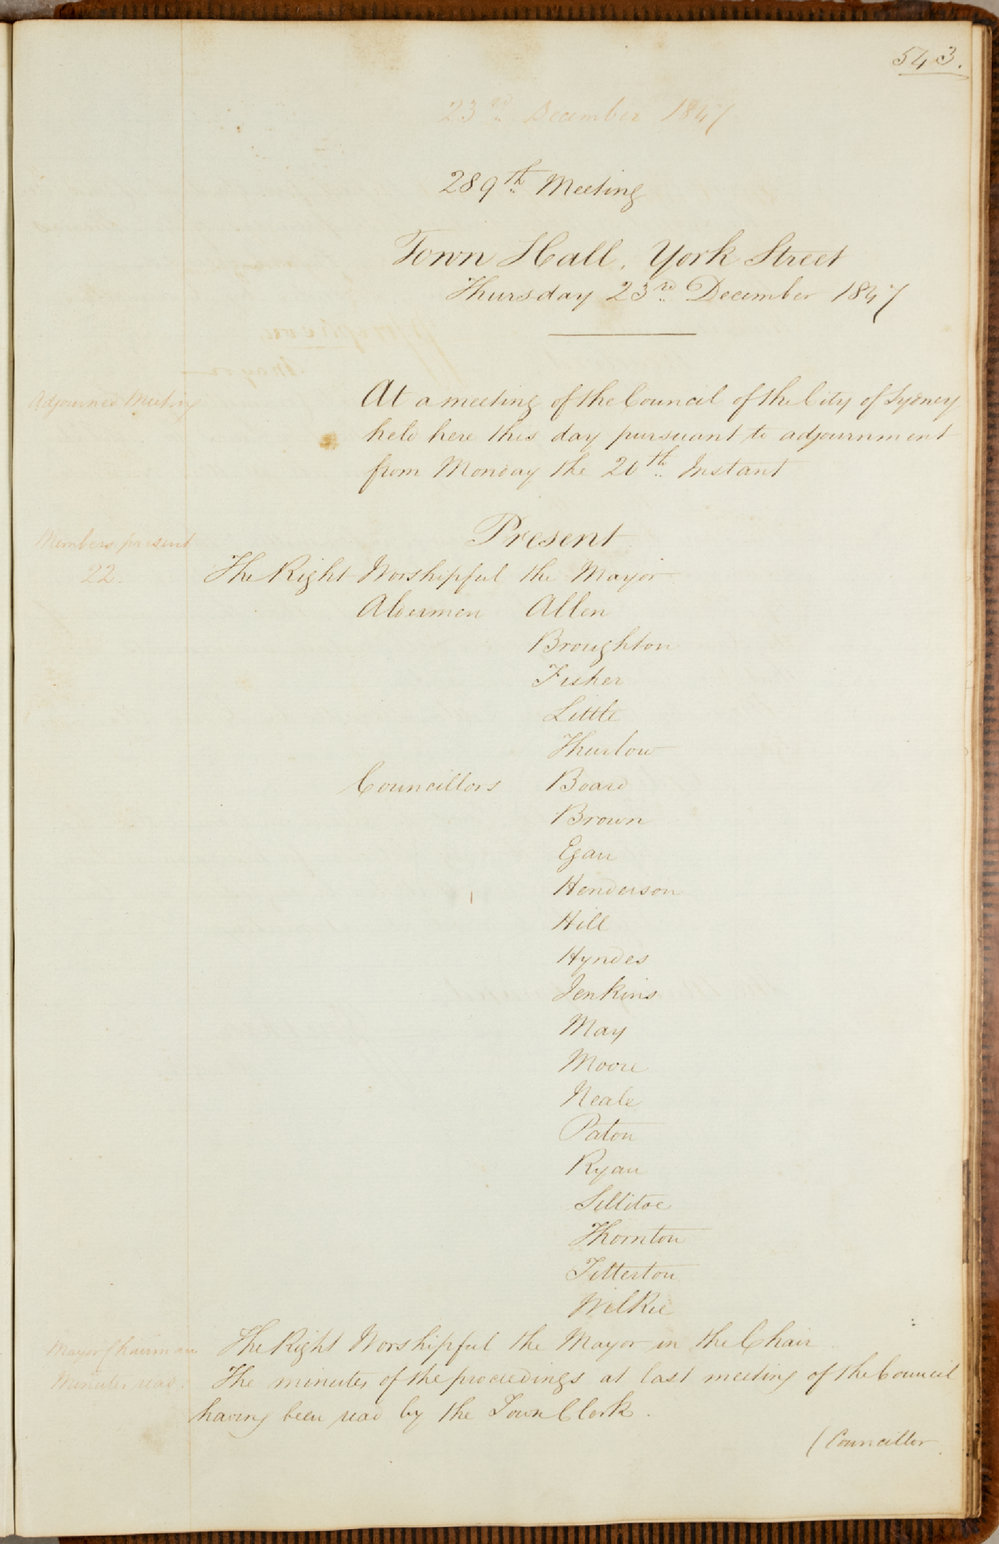 543.
23rd December 1847
289th Meeting
Town Hall, York Street
Thursday 23rd December 1847
Adjourned Meeting
At a meeting of the Council of the City of Sydney
held here this day pursuant to adjournment
from Monday the 20th Instant
Members present
22.
Present
The Right Worshipful the Mayor
Aldermen Allen
Broughton
Fisher
Little
Thurlow
Councillors Board
Brown
Egan
Henderson
Hill
Hyndes
Jenkins
May
Moore
Neale
Paton
Ryan
Sillitoe
Thornton
Titterton
Wilkie
Mayor Chairman
The Right Worshipful the Mayor in the Chair
Minutes read.
The minutes of the proceedings at last meeting of the Council
having been read by the Town Clerk.
(Councillor